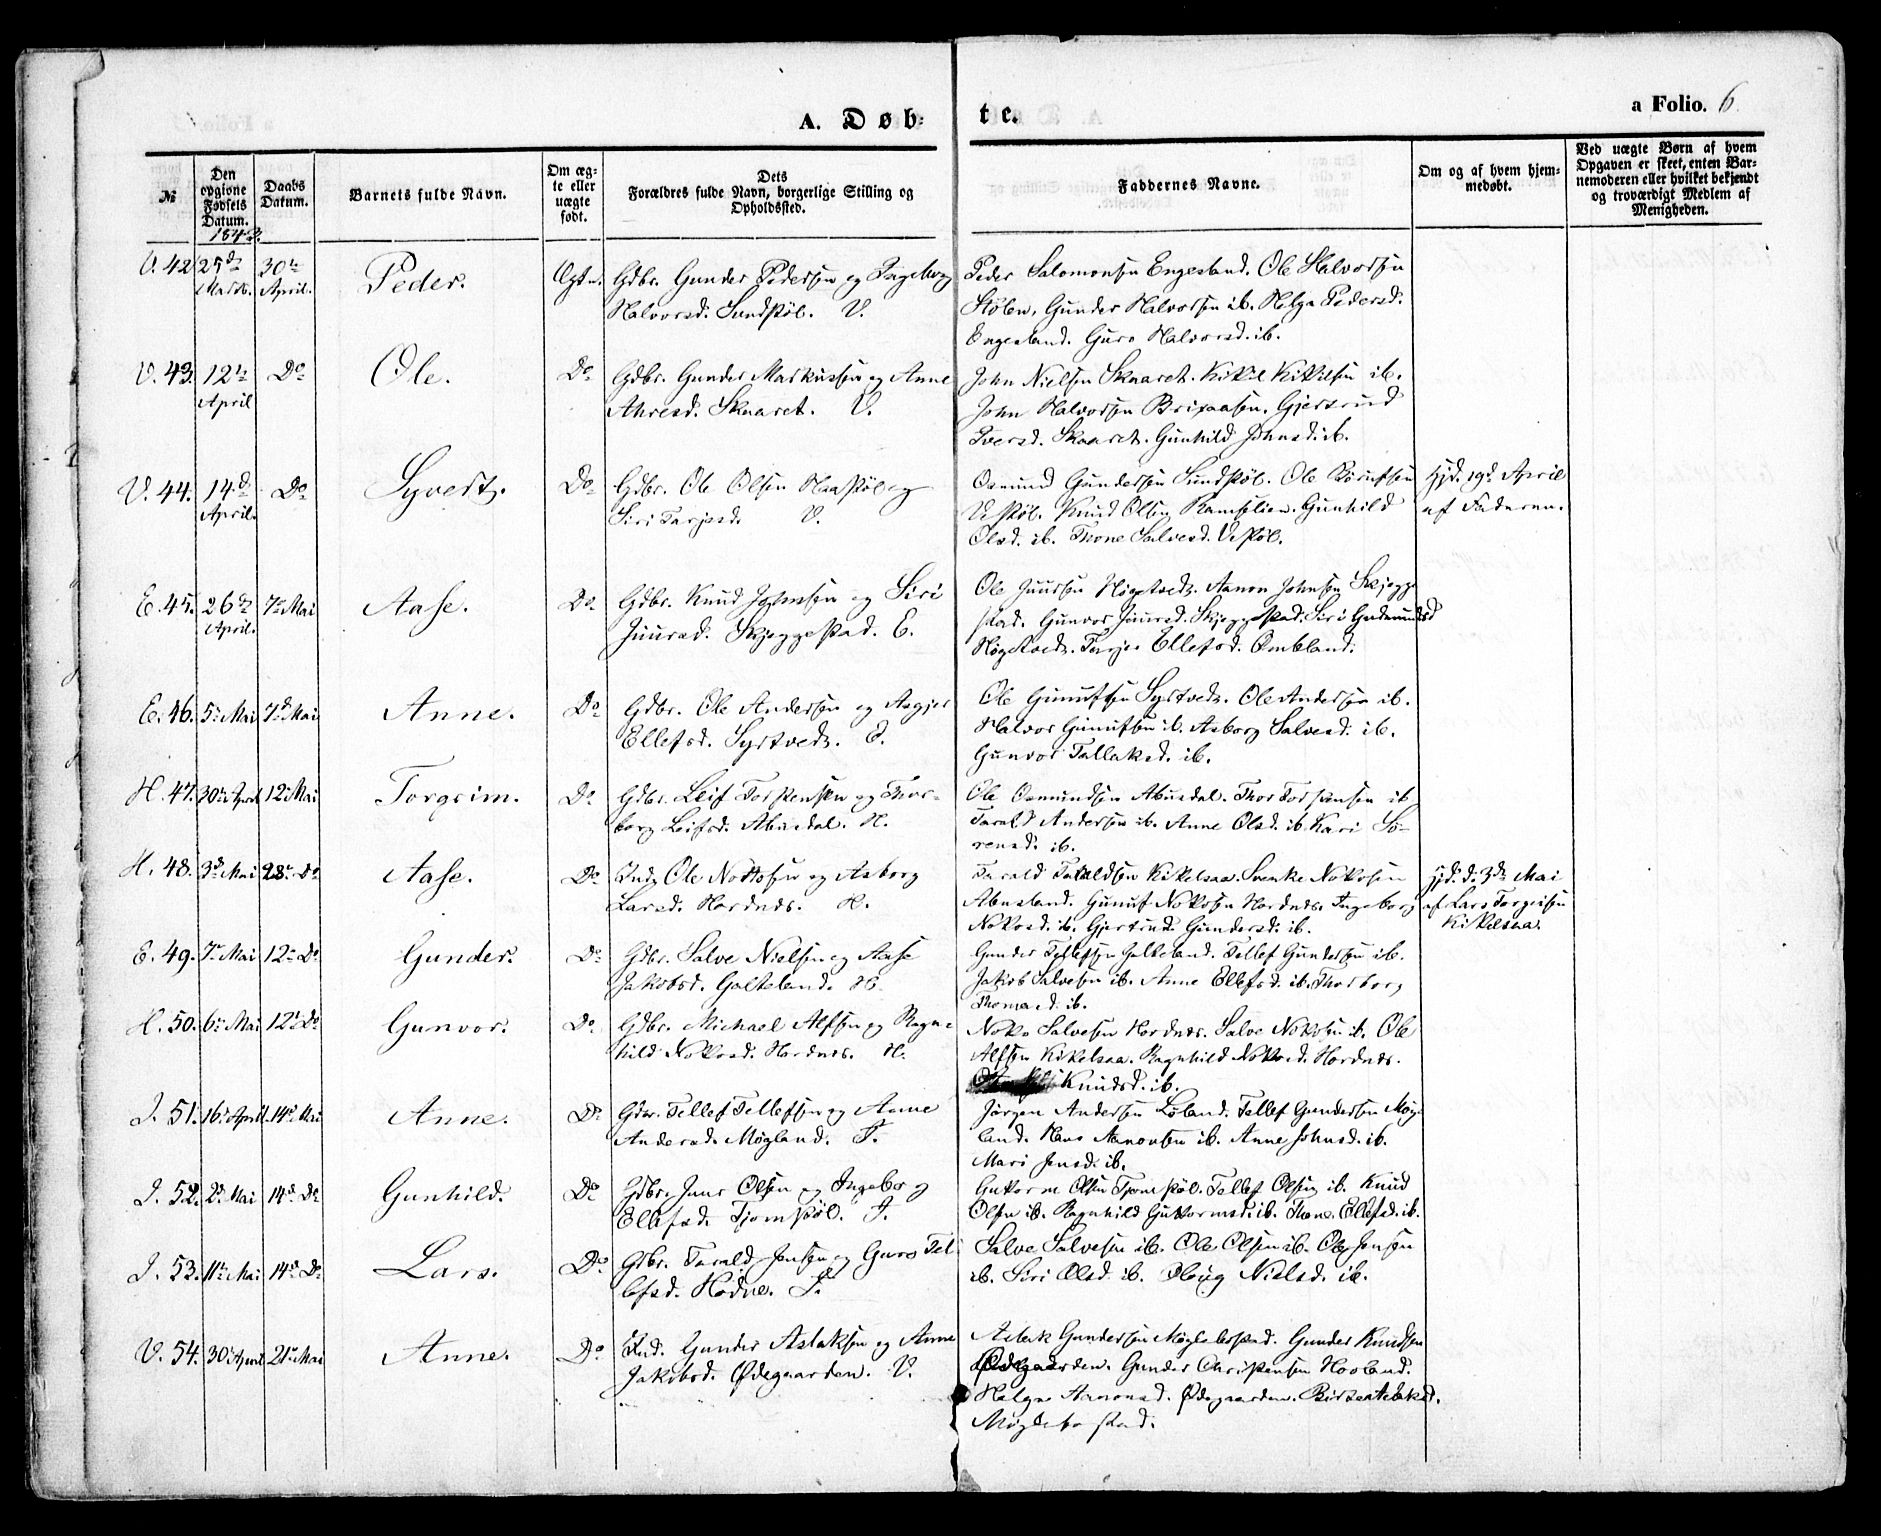 a Folio. 6.
A. Døb- te.
№
Den opgivne Fødsels Datum.
Daabs Datum.
Barnets fulde Navn.
Om ægte eller uægte født.
Dets Forældres fulde Navn, borgerlige Stilling og Opholdssted.
Faddernes Navne.
Om og af hvem hjemmedøbt.
Ved uægte Børn af hvem Opgaven er skeet, enten Barnemoderen eller hvilket bekjendt og troværdigt Medlem af Menigheden.
1843.
V. 42 25de Marts. 30te April. Peder. Ægte. Gdbr. Gunder Pedersen og Ingeborg
Halvorsd. Sundsköl. V.
Peder Salomonsen Engesland. Ole Halvorsen
Stölen, Gunder Halvorsen ib. Helga Pedersd.
Engesland. Guro Halvorsd. ib.
V. 43. 12te April Do Ole. Do Gdbr. Gunder Markussen og Anne
Ahresd. Skaaret. V.
John Nielsen Skaaret. Kikil Kikilsen ib.
John Halvorsen Gjertrud
Iversd. Skaaret. Gunhild Johnsd. ib.
V. 44. 14d. April. Do Syvert. Do Gdbr. Ole Olsen Haasköl og
Siri Tarjesd. V.
Osmund Gundersen Sundsköl. Ole
Vesköl. Knud Olsen Ramslien. Gunhild
Olsd. ib. Thone Salvesd. Vesköl.
Hjd. 19d. April
af Faderen.
E. 45. 26de April. 7de Mai Aase. Do Gdbr. Knud Johnsen og Siri
Juursd. Skjeggestad. E.
Ole Juursen Høgetvedt. Aanon Johnsen Skjegge
stad. Gunvor Juursd. Skjeggestad. Siri Gudmundsd
Høgetvedt. Tarjer Ellefsd. Omland.
E. 46. 5te Mai 7de Mai Anne. Do Gdbr. Ole Andersen og Asgjer
Ellefsd. Syrtvedt. E.
Ole Gunufsen Syrtvedt. Ole Andersen ib.
Halvor Gunufsen ib. Asborg Salvesd. ib.
Gunvor Tallaksd. ib.
H. 47. 30te April 12te Mai Torgrim. Do Gdbr. Leif Torstensen og Thor-
borg Leifsd. Abusdal. H.
Ole Osmundsen Abusdal. Thor Torstensen ib
Tarald Andersen ib. Anne Olsd. ib. Kari Sö-
rensd. ib.
H. 48. 3de Mai 28de Do Aase. Do Ind. Ole Nottosen og Asborg
Larsd. Hordnes. H.
Tarald Taraldsen Kikelsaa. Svenke Notosen
Abusland. Gunuf Notosen Hordnes. Ingeborg
Notosd. ib. Gjertrud Gundersd. ib.
Hjd. d. 3de Mai
af Lars Torgrisen
Kikelsaa.
E. 49. 7de Mai 12te Do Gunder. Do Gdbr. Salve Nielsen og Aase
Jakobsd. Galteland. H
Gunder Tellefsen Galteland. Tellef Gundersen ib.
Jakob Salvesen ib. Anne Ellefsd. ib. Thorborg
Thomasd. ib.
H. 50. 6te Mai 12te Do Gunvor. Do Gdbr. Michael Alfsen og Ragn-
hild Notosd. Hordnes. H.
Noto Salvesen Hordnes. Salve Notosen ib. Ole
Alfsen Kikelsaa. Ragnhild Notosd. Hordnes.
Knudsd. ib.
I. 51. 16de April 14de Mai Anne. Do Gdbr. Tellef Tellefsen og Anne
Andersd. Møgland. I.
Jörgen Andersen Løland. Tellef Gundersen Møg-
land. Hans Aanonsen ib. Anne Johnsd. ib.
Mari Jensd. ib.
I. 52. 2de Mai 14de Do Gunhild. Do Gdbr. Juur Olsen og Ingeborg
Ellefsd. Tjomsköl. I.
Gutorm Olsen Tjomsköl. Tellef Olsen ib. Knud
Olsen ib. Ragnhild Guttormsd. ib. Thone Ellefsd. ib.
I. 53. 11te Mai 14de Do Lars. Do Gdbr. Tarald Jensen og Guro Tel-
lefsd. Hodne. I.
Salve Salvesen ib. Ole Olsen ib. Ole Jensen
ib. Siri Olsd. ib. Oloug Nielsd. ib.
V. 54. 30te April 21de Mai Anne. Do Ind. Gunder Aslaksen og Anne
Jakobsd. Ødegaarden. V.
Aslak Gundersen Møglebostad. Gunder Knudsen
Ødegaarden. Gunder Christensen Hovland.
Helga Aanonsd. Ødegaarden. Birte Aslaksd.
Møglebostad.